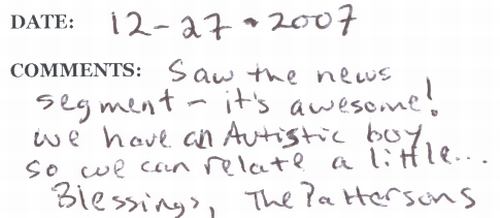 DATE: 12-27-2007
COMMENTS: Saw the news
segment - it's awesome!
we have an Autistic boy
so we can relate a little...
Blessings, The Pattersons